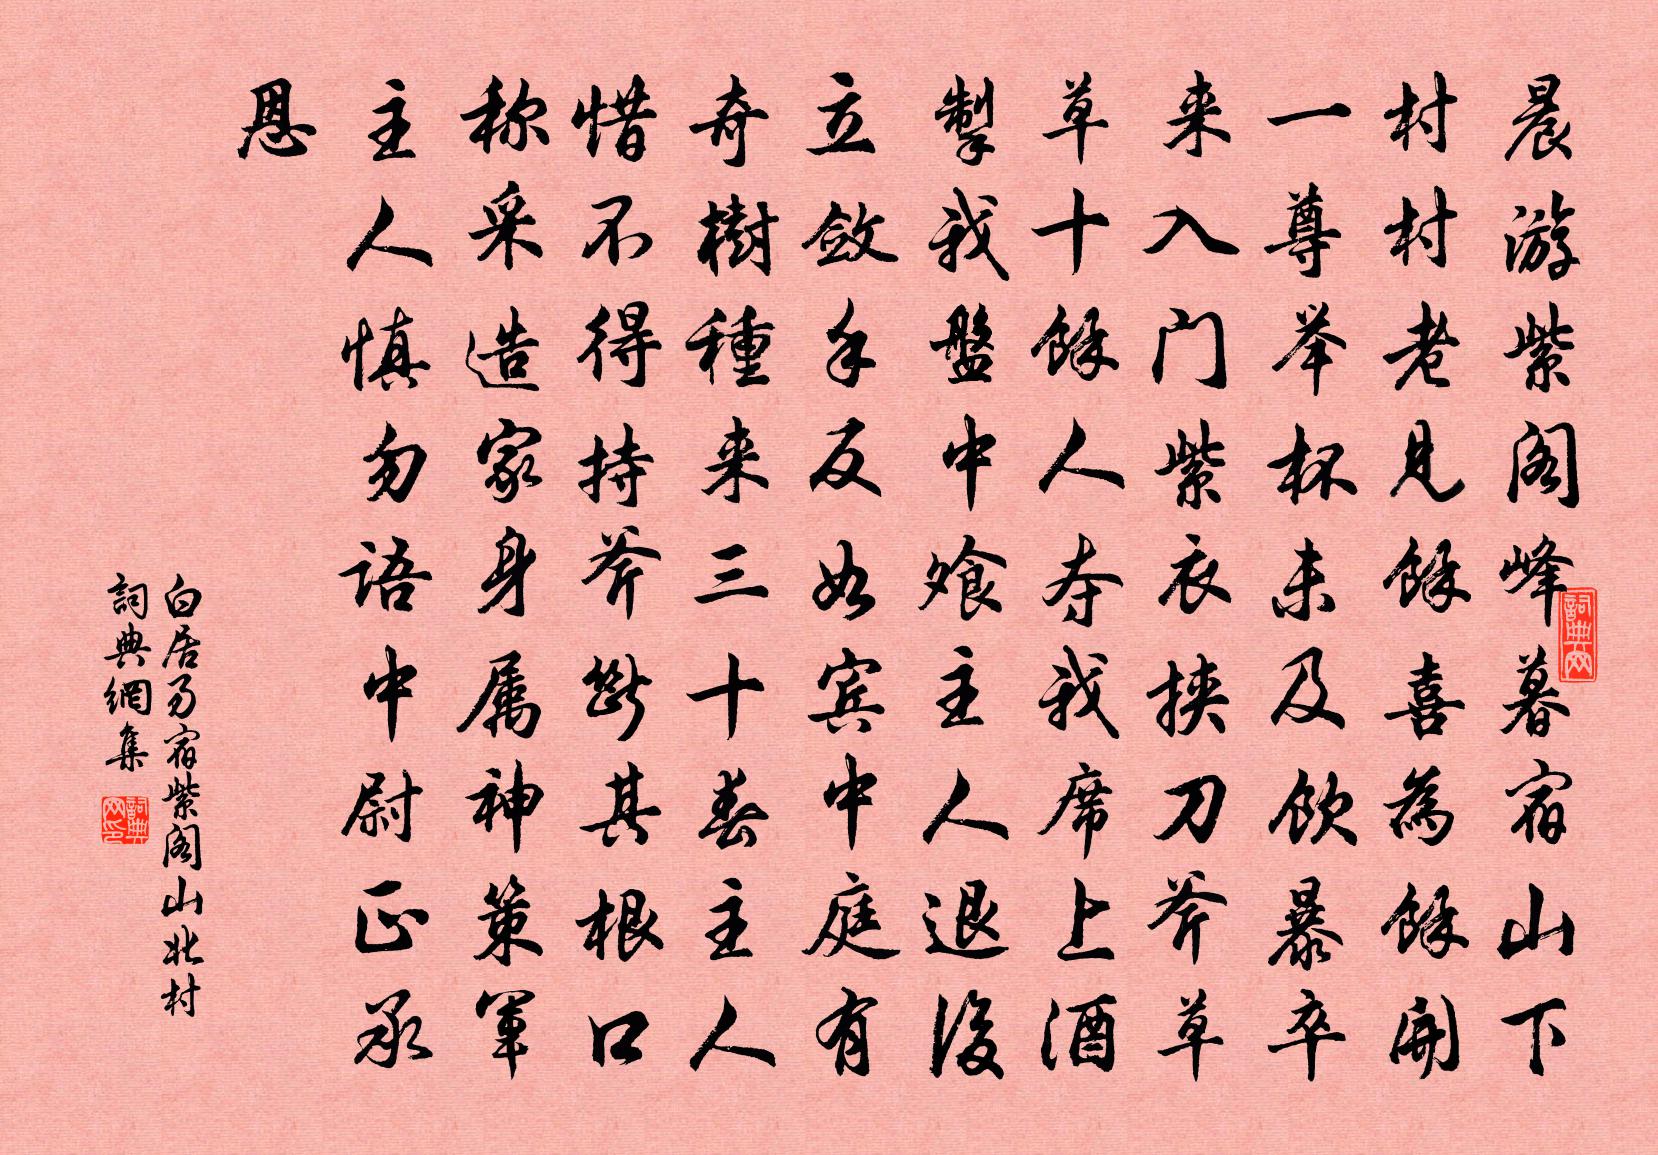 晨游紫阁峰暮宿山下
村村老見餘喜為餘開
一尊举杯未及飲暴卒
来入门紫衣挟刀斧草
草十餘人夺我席上酒
掣我盤中飧主人退後
立斂手反如宾中庭有
奇樹種来三十春主人
惜不得持斧斷其根口
称采造家身属神策军
主人慎勿语中尉正承
恩
白居易宿紫阁山北村
詞典網集
詞典网
詞典网印